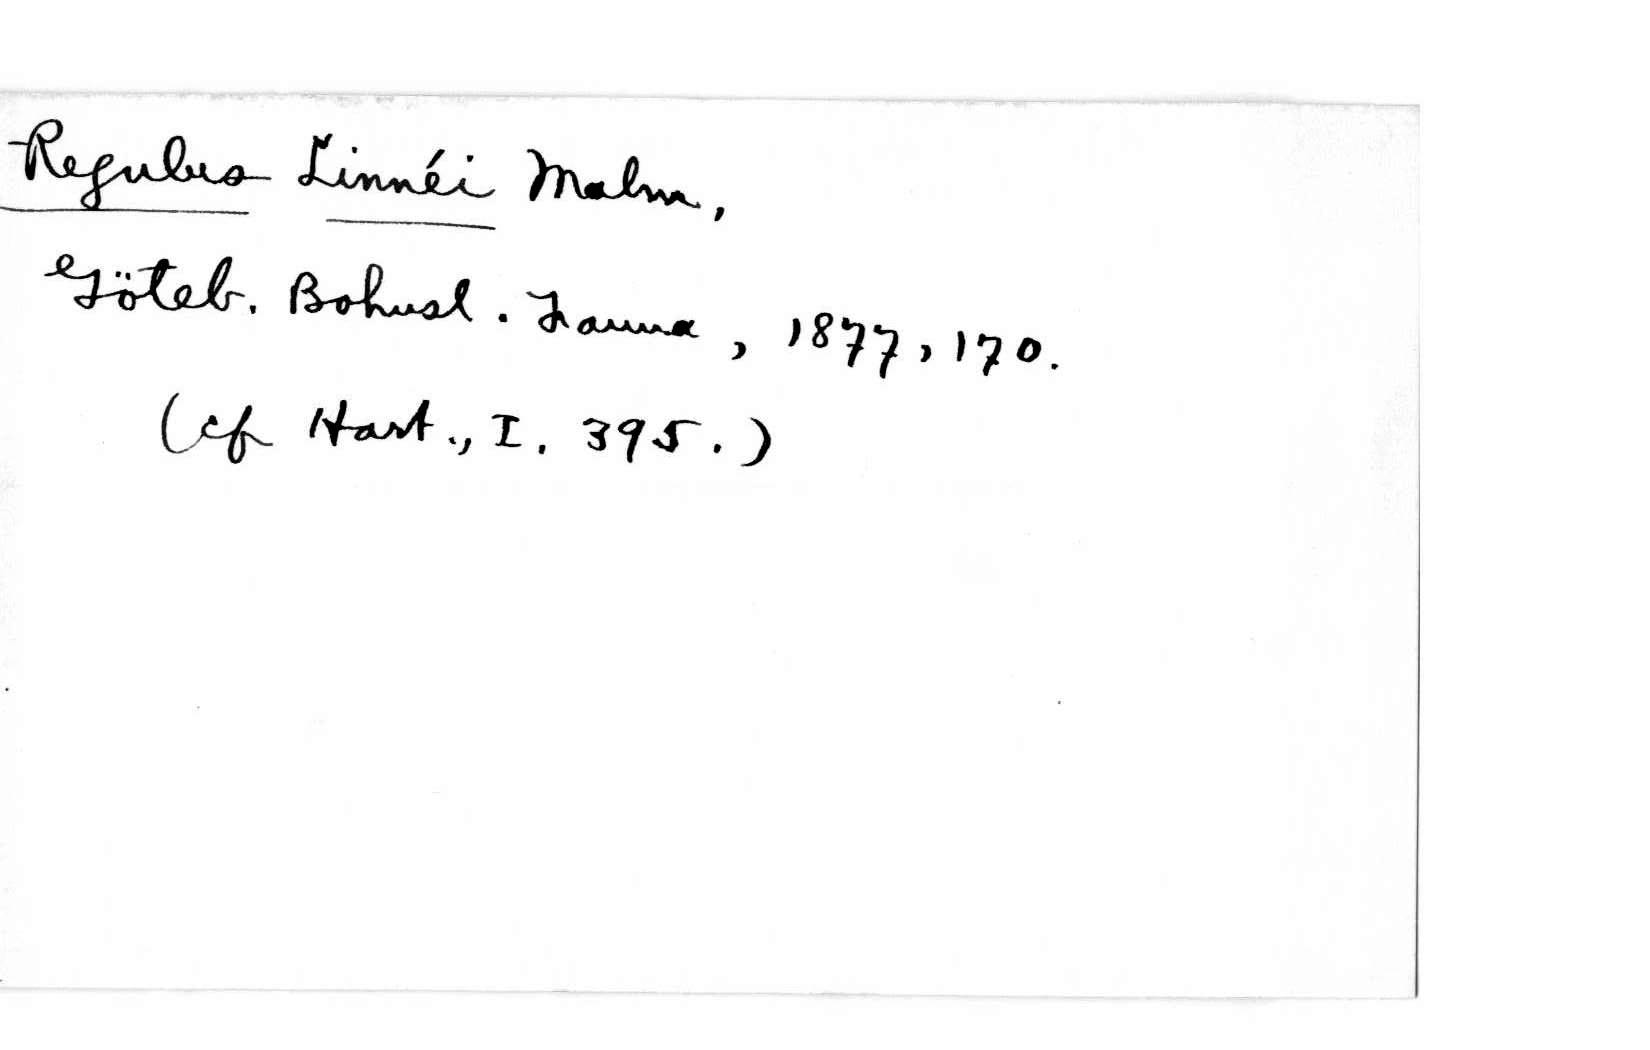 Regulus Linnéi Malm,
Göteb. Bohusl. Fauna, 1877, 170.
(cf Hart., I. 395.)